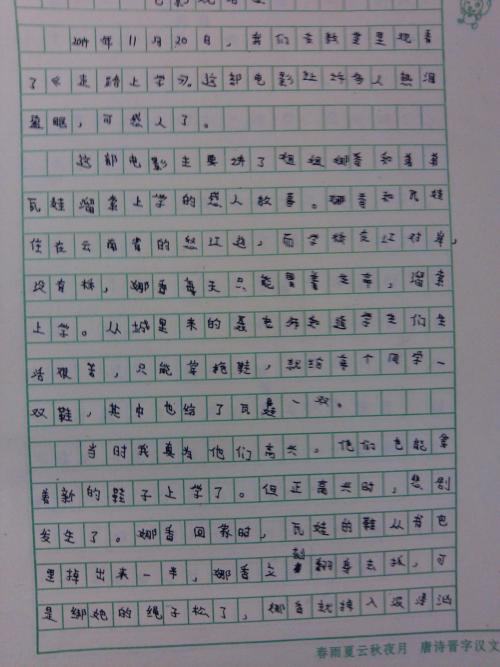 2014年11月20日,我们在教室里观看
了《走路上学》。这部电影让许多人热泪
盈眶,可感人了。
这部电影主要讲了姐姐娜香和弟弟
瓦娃溜索上学的感人故事。娜香和瓦娃
住在云南省的怒江边,而学校在江对岸,
没有桥,娜香每天只能冒着生命,溜索
上学。从城里来的聂老师知道学生们生
活艰苦,只能穿拖鞋,就给每个同学一
双鞋,其中也给了瓦娃一双。
当时我真为他们高兴,他们也能穿
着新的鞋子上学了。但正高兴时,悲剧
发生了。娜香回家时,瓦娃的鞋从书包
里掉出来一只,娜香又去找,可
是绑她的绳子松了,娜香就掉入
春雨夏云秋夜月 唐诗晋字汉文